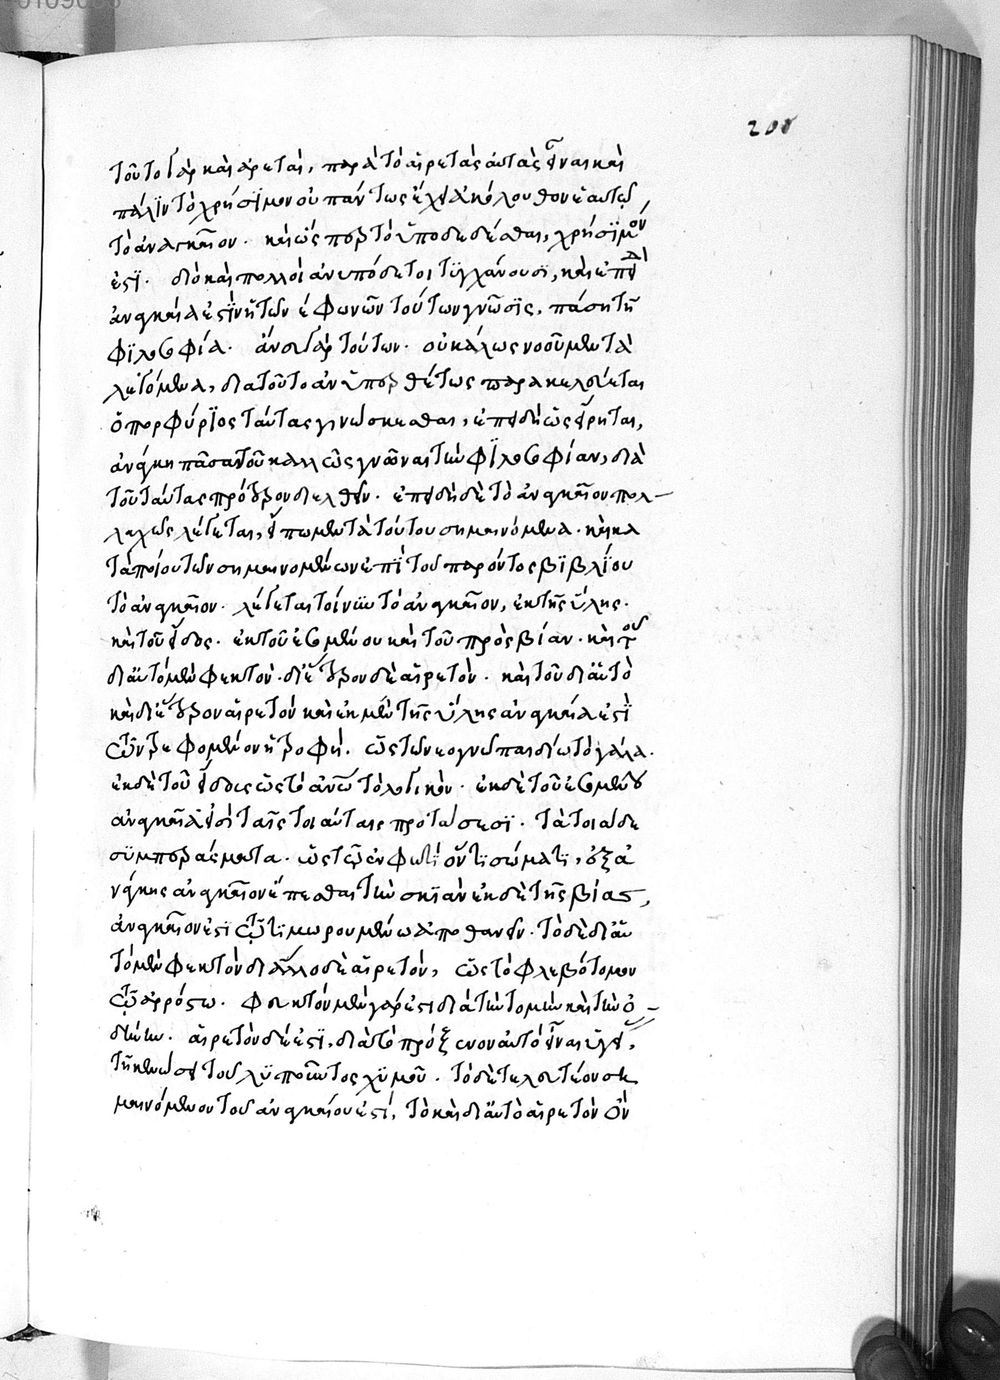 τοῦτο γὰρ καὶ ἀρεταὶ, παρὰ τὸ αἱρετὰς αὐτὰς εἶναι καὶ
πάλιν τὸ χρήσϊμον οὐ πάντως ἔχει ἀκόλουθον ἑαυτῷ
τὸ ἀναγκαῖον. καὶ ὡς περ τὸ ὑποδεδέσθαι, χρήσϊμον
ἐστΐ. διὸ καὶ πολλοὶ ἀνυπόδετοι τϋγχάνουσϊ, καὶ ἐπειδὴ
ἀναγκαία ἐστϊν ἡ τῶν ε φωνῶν τούτων γνῶσϊς, πάσῃ τῇ
φϊλοσοφία. ἄνευ γὰρ τούτων. οὐ καλῶς νοοῦμεν τὰ
λεγόμενα, διὰ τοῦτο ἀνϋπερθέτως παρακελεύεται
ὁ πορφύρϊος ταύτας γινώσκεσθαι, ἐπειδὴ ὡς εἴρηται,
ἀνάγκη πᾶσα τοῦ καλῶς γνῶναι τὴν φϊλοσοφίαν, διὰ
τοῦ ταύτας πρότερον διελθεῖν. ἐπειδὴ δὲ τὸ ἀναγκαῖον πολ-
λαχῶς λέγεται, εἴπωμεν τὰ τούτου σημαινόμενα. καὶ κα
τὰ ποίου τῶν σημαινομένων ἐπῒ τοῦ παρόντος βϊβλΐου
τὸ ἀναγκαῖον. λέγεται τοίνυν τὸ ἀναγκαῖον, ἐκ τῆς ὕλης.
καὶ τοῦ εἴδους. ἐκ τοῦ ἑσομένου καὶ τοῦ πρὸς βίαν. καὶ τοῦ
δι αὐτὸ μὲν φευκτὸν. δι' ἕτερον δὲ αἱρετὸν. καὶ τοῦ δι αὐτὸ
καὶ δι' ἕτερον αἱρετὸν καὶ ἐκ μὲν τῆς ὕλης ἀναγκαία ἐστῒ
τῶν τρεφομένων ἡ τροφὴ. ὡς τῶ νεογνῶ παιδίω τὸ γάλα.
ἐκ δὲ τοῦ εἴδους ὡς τὸ ἀνω τὸ λογικὸν. ἐκ δὲ τοῦ ἑσομένου
ἀναγκαῖα εἰσὶ ταῖς τοιαύταις προτάσεσϊ. τὰ τοιάδε
σϋμπεράσματα. ὡς τῷ ἐν φωτὶ ὄντϊ σώματϊ, ἐξ ἀ
νάγκης ἀναγκαῖον ἕπεσθαι τὴν σκϊὰν ἐκ δὲ τῆς βίας,
ἀναγκαῖον ἐστϊ τῷ τϊμωρουμένω ἀποθανεῖν. τὸ δὲ δι αὐ
τὸ μὲν φευκτὸν δι ἄλλο δὲ αἱρετὸν, ὡς τὸ φλεβότομον
τῷ ἀρρώστω. φευκτὸν μὲν γάρ ἐστι διὰ τὴν τομὴν καὶ τὴν ὀ-
δύνην. αἱρετὸν δὲ ἐστϊ, διὰ τὸ πρόξενον αὐτὸ εἶναι ὑγεί,
τῇ κενώσει τοῦ λϋποῦντος χϋμοῦ. τὸ δὲ τελευταίον ση
μαινόμενον τοῦ ἀναγκαίου ἐστί, τὸ καὶ δι αὐτὸ αἱρετὸν ὂν